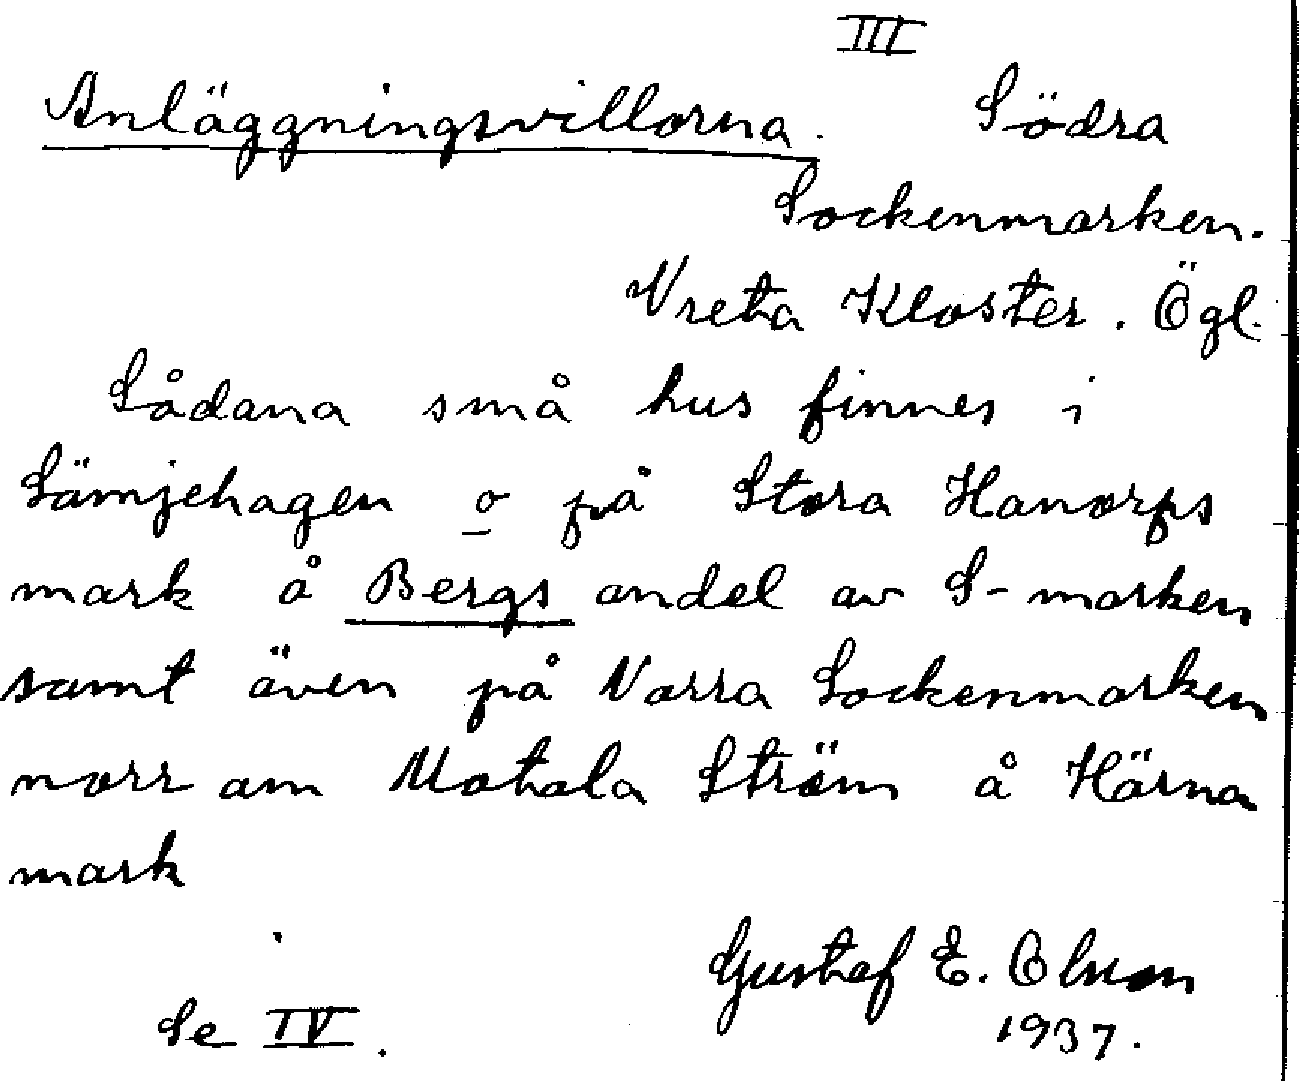 III
Anläggningsvillorna. Södra
Sockenmarken.
Vreta Kloster. Ögl.
Sådana små hus finnes i
Sämjehagen o på Stora Hanorps
mark å Bergs andel av S-marken
samt även på Norra Sockenmarken
norr om Motala Ström å Härna
mark
Gustaf E. Olsson
Se IV. 1937.